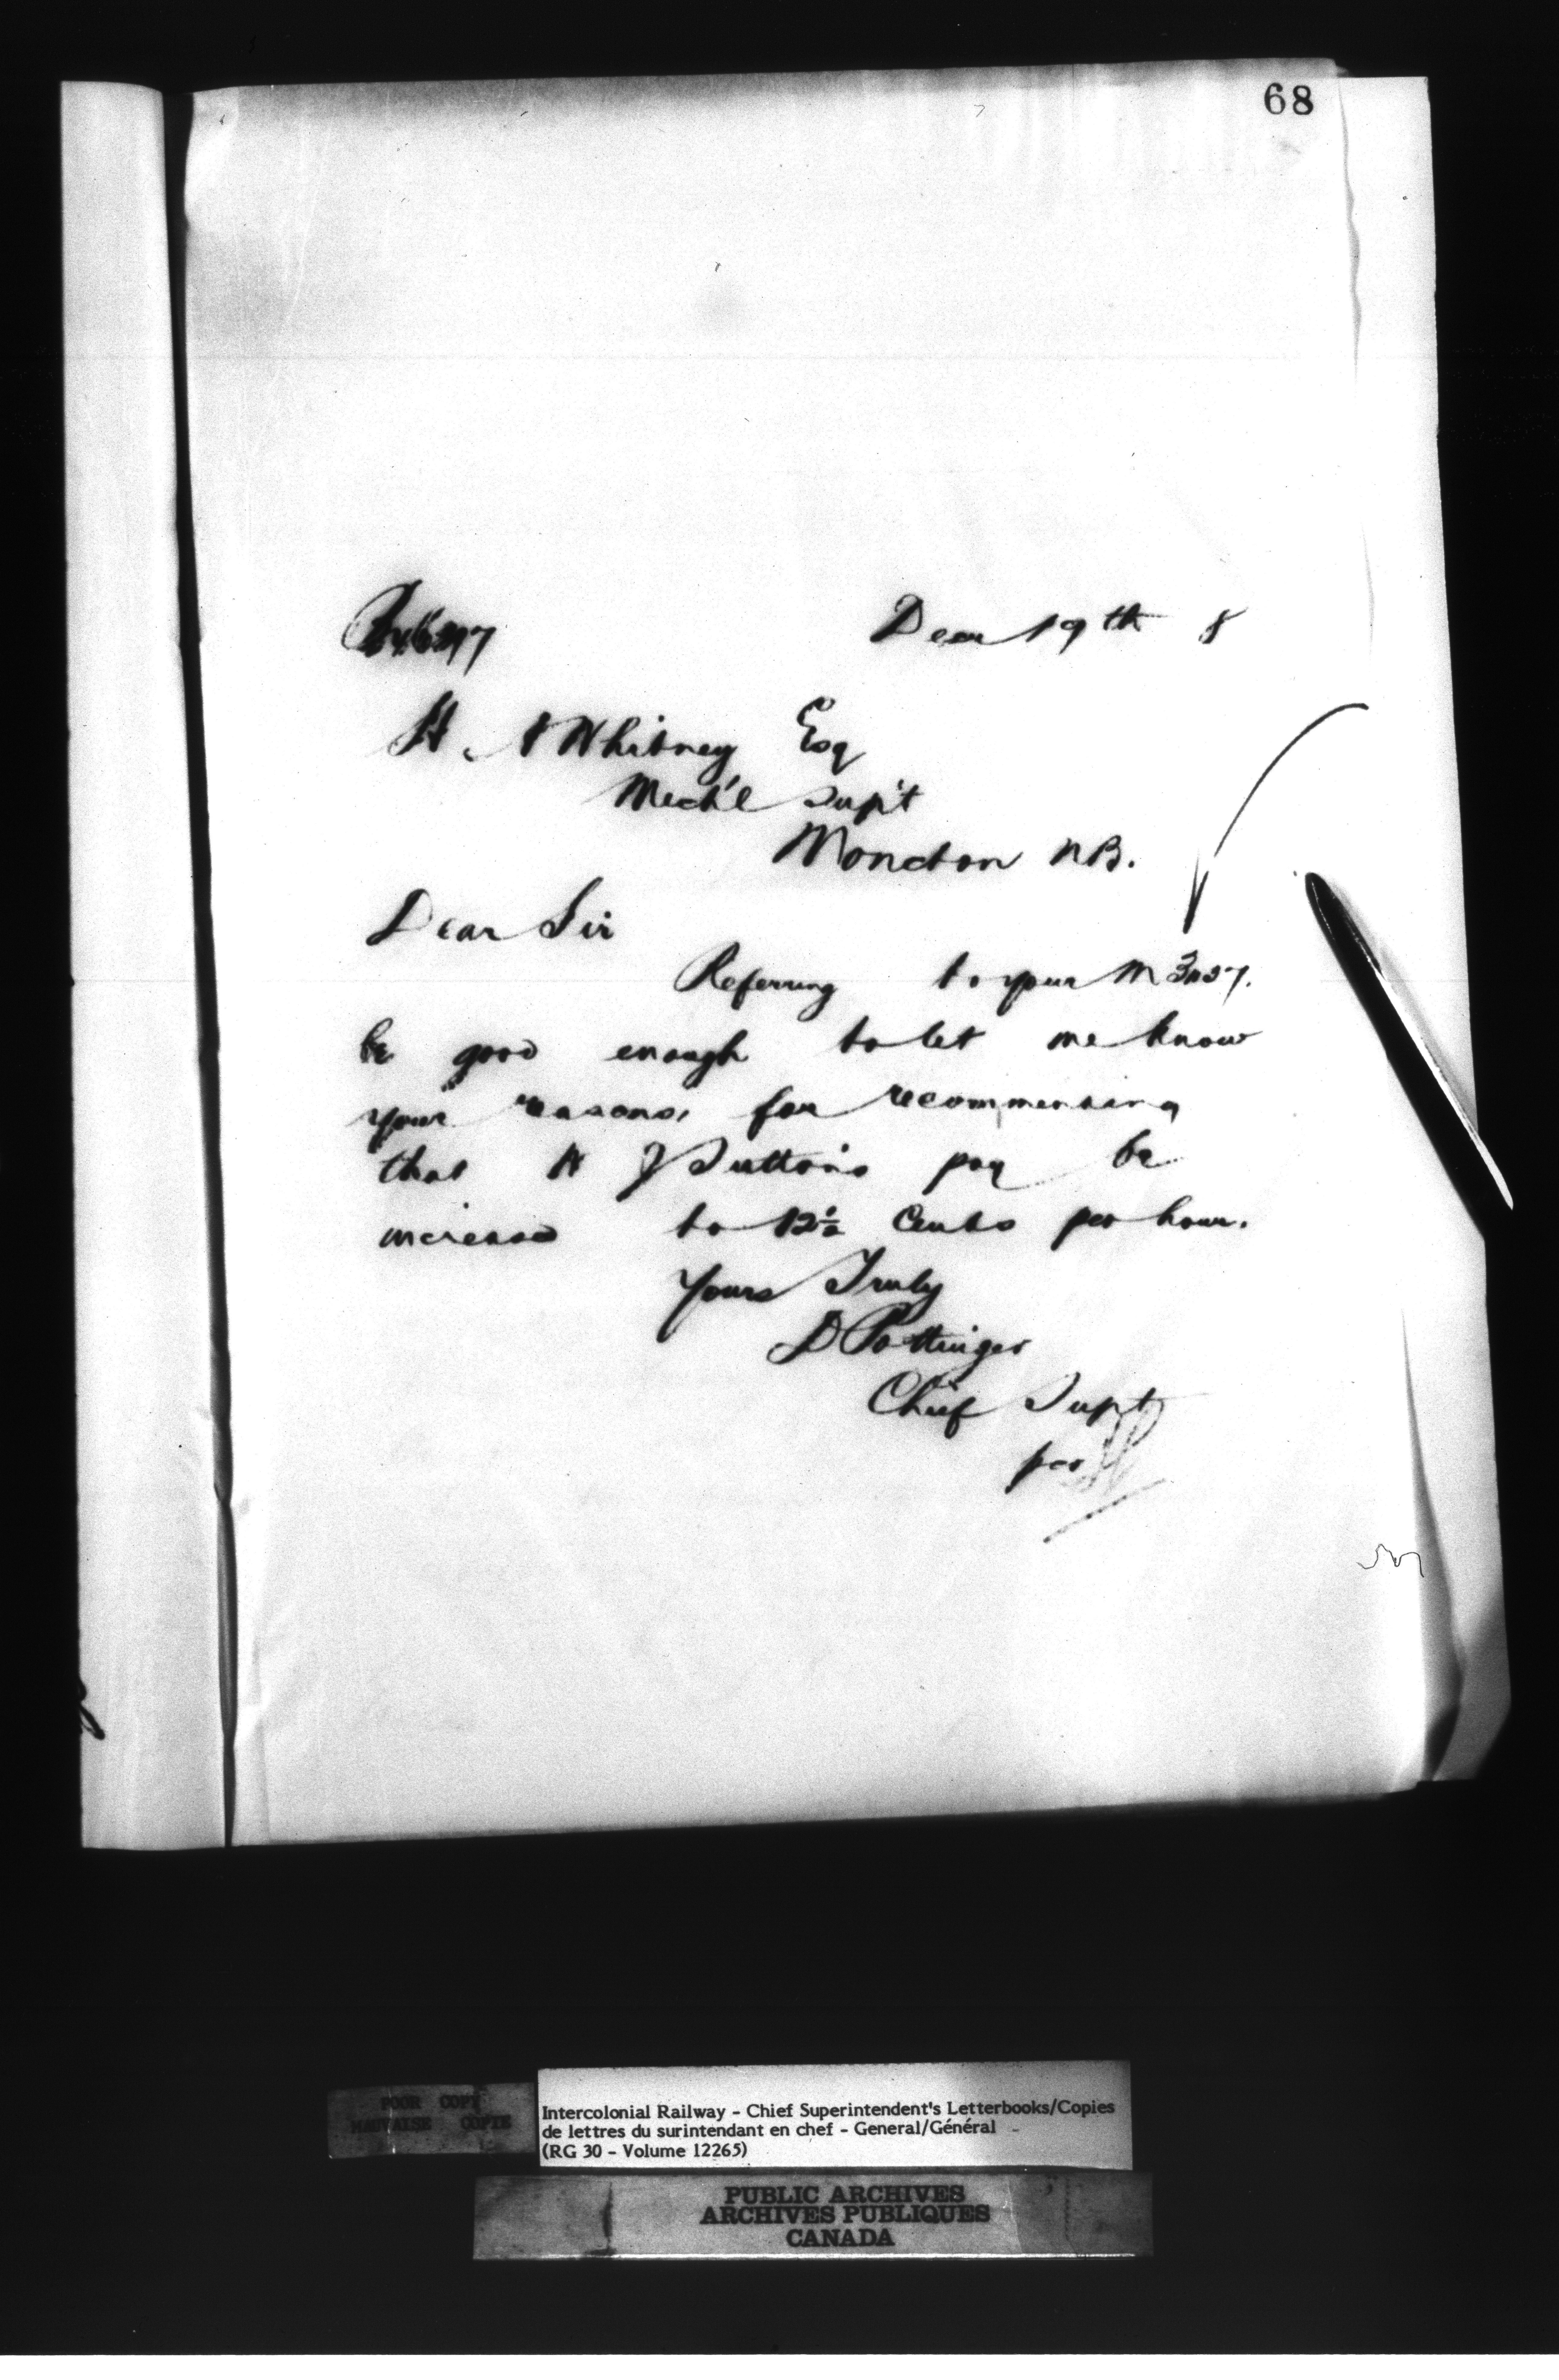 68
Decr 19th 8
H. A Whitney Esq
Mech'l Sup't
Moncton NB.
Dear Sir
Referring to your M
be good enough to let me know
your reasons, for recommending
that W J Sutton's pay be
increased to 12½ Cents per hour.
Yours Truly
D Pottinger
Chief Supt
per
POOR COPY
MAUVAISE COPIE
Intercolonial Railway - Chief Superintendent's Letterbooks/Copies
de lettres du surintendant en chef - General/Général -
(RG 30 - Volume 12265)
PUBLIC ARCHIVES
ARCHIVES PUBLIQUES
CANADA